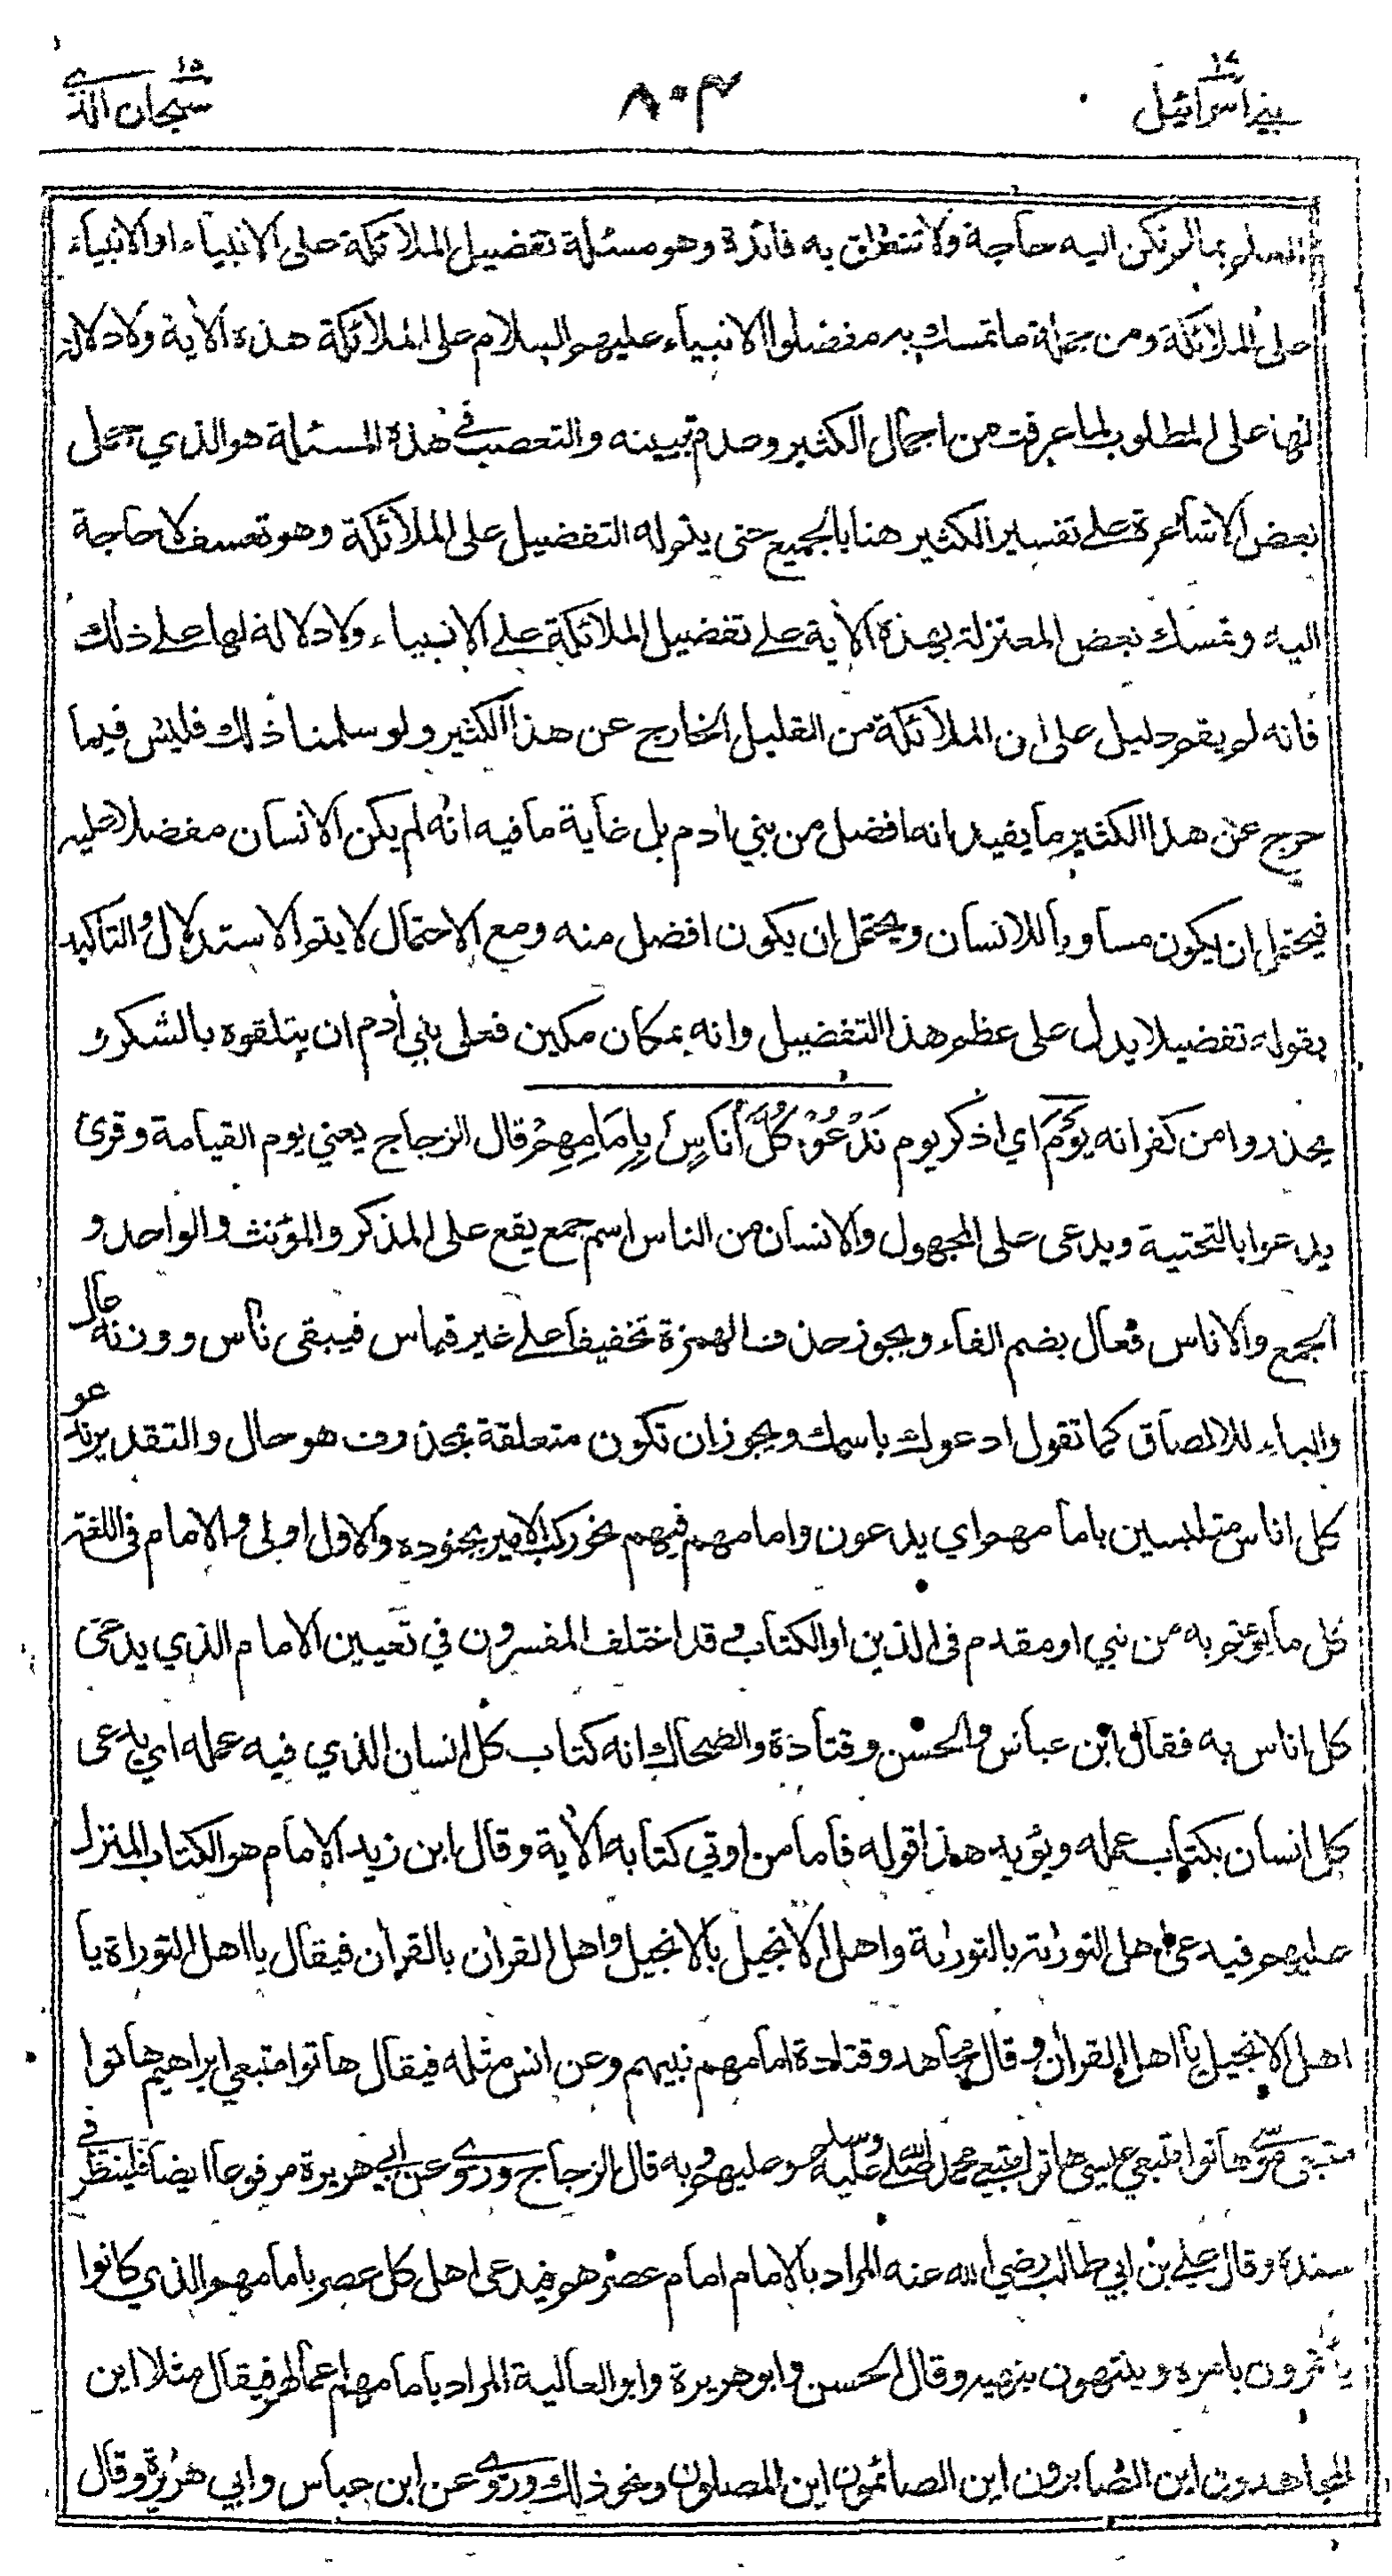 بني اسرائيل ١٧
٨٠٣
سبحان الذي ١٥
العلم بما لم تكن اليه حاجة ولا تتعلق به فائدة وهو مسئلة تفضيل الملائكة على الانبياء او الانبياء
على الملائكة ومن جملة ما تمسك به مفضلوا الانبياء عليهم السلام على الملائكة هذه الأية ولا دلالة
لها على المطلوب لما عرفت من اجمال الكثير وعدم تبيينه والتعصب في هذه المسئلة هو الذي حمل
بعض الاشاعرة على تفسير الكثير هنا بالجميع حتى يتم له التفضيل على الملائكة وهو تعسف لا حاجة
اليه وتمسك بعض المعتزلة بهذه الأية على تفضيل الملائكة على الانبياء ولا دلالة لها على ذلك
فانه لم يقم دليل على ان الملائكة من القليل الخارج عن هذا الكثير ولو سلمنا ذلك فليس فيما
خرج عن هذا الكثير ما يفيد انه افضل من بني أدم بل غاية ما فيه انه لم يكن الانسان مفضلا عليه
فيحتمل ان يكون مساويا للانسان ويحتمل ان يكون افضل منه ومع الاحتمال لا يتم الاستدلال والتاكيد
بقوله تفضيلا يدل على عظم هذا التفضيل وانه بمكان مكين فعلى بني أدم ان يتلقوه بالشكر و
يحذروا من كفرانه يَوْمَ اي اذكر يوم نَدْعُوْ كُلَّ أُنَاسٍ بِإِمَامِهِمْ قال الزجاج يعني يوم القيامة وقرئ
يدعوا بالتحتية ويدعى على المجهول والانسان من الناس اسم جمع يقع على المذكر والمؤنث والواحد و
الجمع والاناس فعال بضم الفاء ويجوز حذف الهمزة تخفيفا على غير قياس فيبقى ناس ووزنه عال
والباء للالصاق كما تقول ادعوك باسمك ويجوز ان تكون متعلقة بمحذوف هو حال والتقدير ندعو
كل اناس متلبسين بامامهم اي يدعون وامامهم فيهم نحو ركب الامير بجنوده والاول اولى والامام في اللغة
كل ما يؤتم به من نبي او مقدم في الدين او الكتاب وقد اختلف المفسرون في تعيين الامام الذي يدعى
كل اناس به فقال ابن عباس والحسن وقتادة والضحاك انه كتاب كل انسان الذي فيه عمله اي يدعى
كل انسان بكتاب عمله ويؤيد هذا قوله فاما من اوتي كتابه الأية وقال ابن زيد الامام هو الكتاب المنزل
عليهم فيدعى اهل التورية بالتورية واهل الانجيل بالانجيل واهل القرأن بالقرأن فيقال يا اهل التوراة يا
اهل الانجيل يا اهل القرأن وقال مجاهد وقتادة امامهم نبيهم وعن انس مثله فيقال هاتوا متبعي ابراهيم هاتوا
متبعي موسى هاتوا متبعي عيسى هاتوا متبعي محمد صلى الله عليه وسلم وعليهم وبه قال الزجاج وروي عن ابي هريرة مرفوعا ايضا فلينظر في
سنده وقال علي بن ابي طالب رضي الله عنه المراد بالامام امام عصرهم فيدعى اهل كل عصر بامامهم الذي كانوا
يأتمرون بامره وينتهون بنهيه وقال الحسن وابو هريرة وابو العالية المراد بامامهم اعمالهم فيقال مثلا اين
المجاهدون اين الصابرون اين الصائمون اين المصلون ونحو ذلك وروي عن ابن عباس وابي هريرة وقال